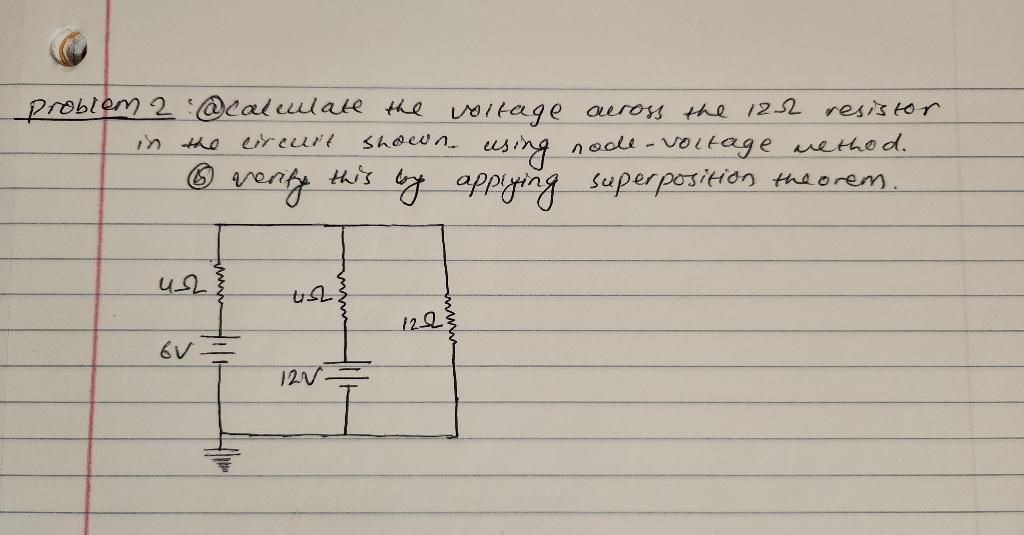 Problem 2: ⓐ calculate the voltage across the 12Ω resistor
in the circuit shown using node-voltage method.
ⓑ verify this by applying superposition theorem.
4Ω
4Ω
12Ω
6V
12V